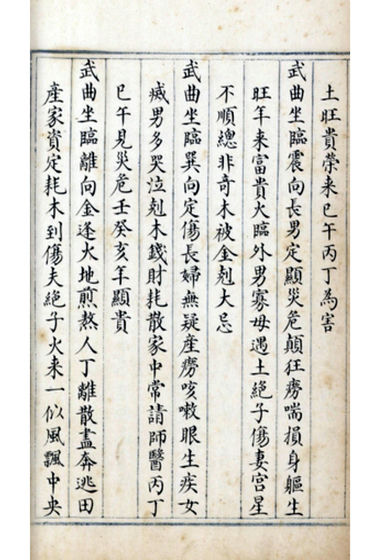 土旺貴榮来巳午丙丁為害
武曲坐臨震向長男定顯災危顛狂癆喘損身軀生
旺年来富貴火臨外男寡母遇土絶子傷妻宮星
不順總非奇木被金剋大忌
武曲坐臨巽向定傷長婦無疑産癆咳嗽眼生疾女
喊男多哭泣剋木錢財耗散家中常請師醫丙丁
巳午見災危壬癸亥年顯貴
武曲坐臨離向金逢火地煎熬人丁離散盡奔逃田
産家資定耗木到傷夫絶子火来一似風飄中央